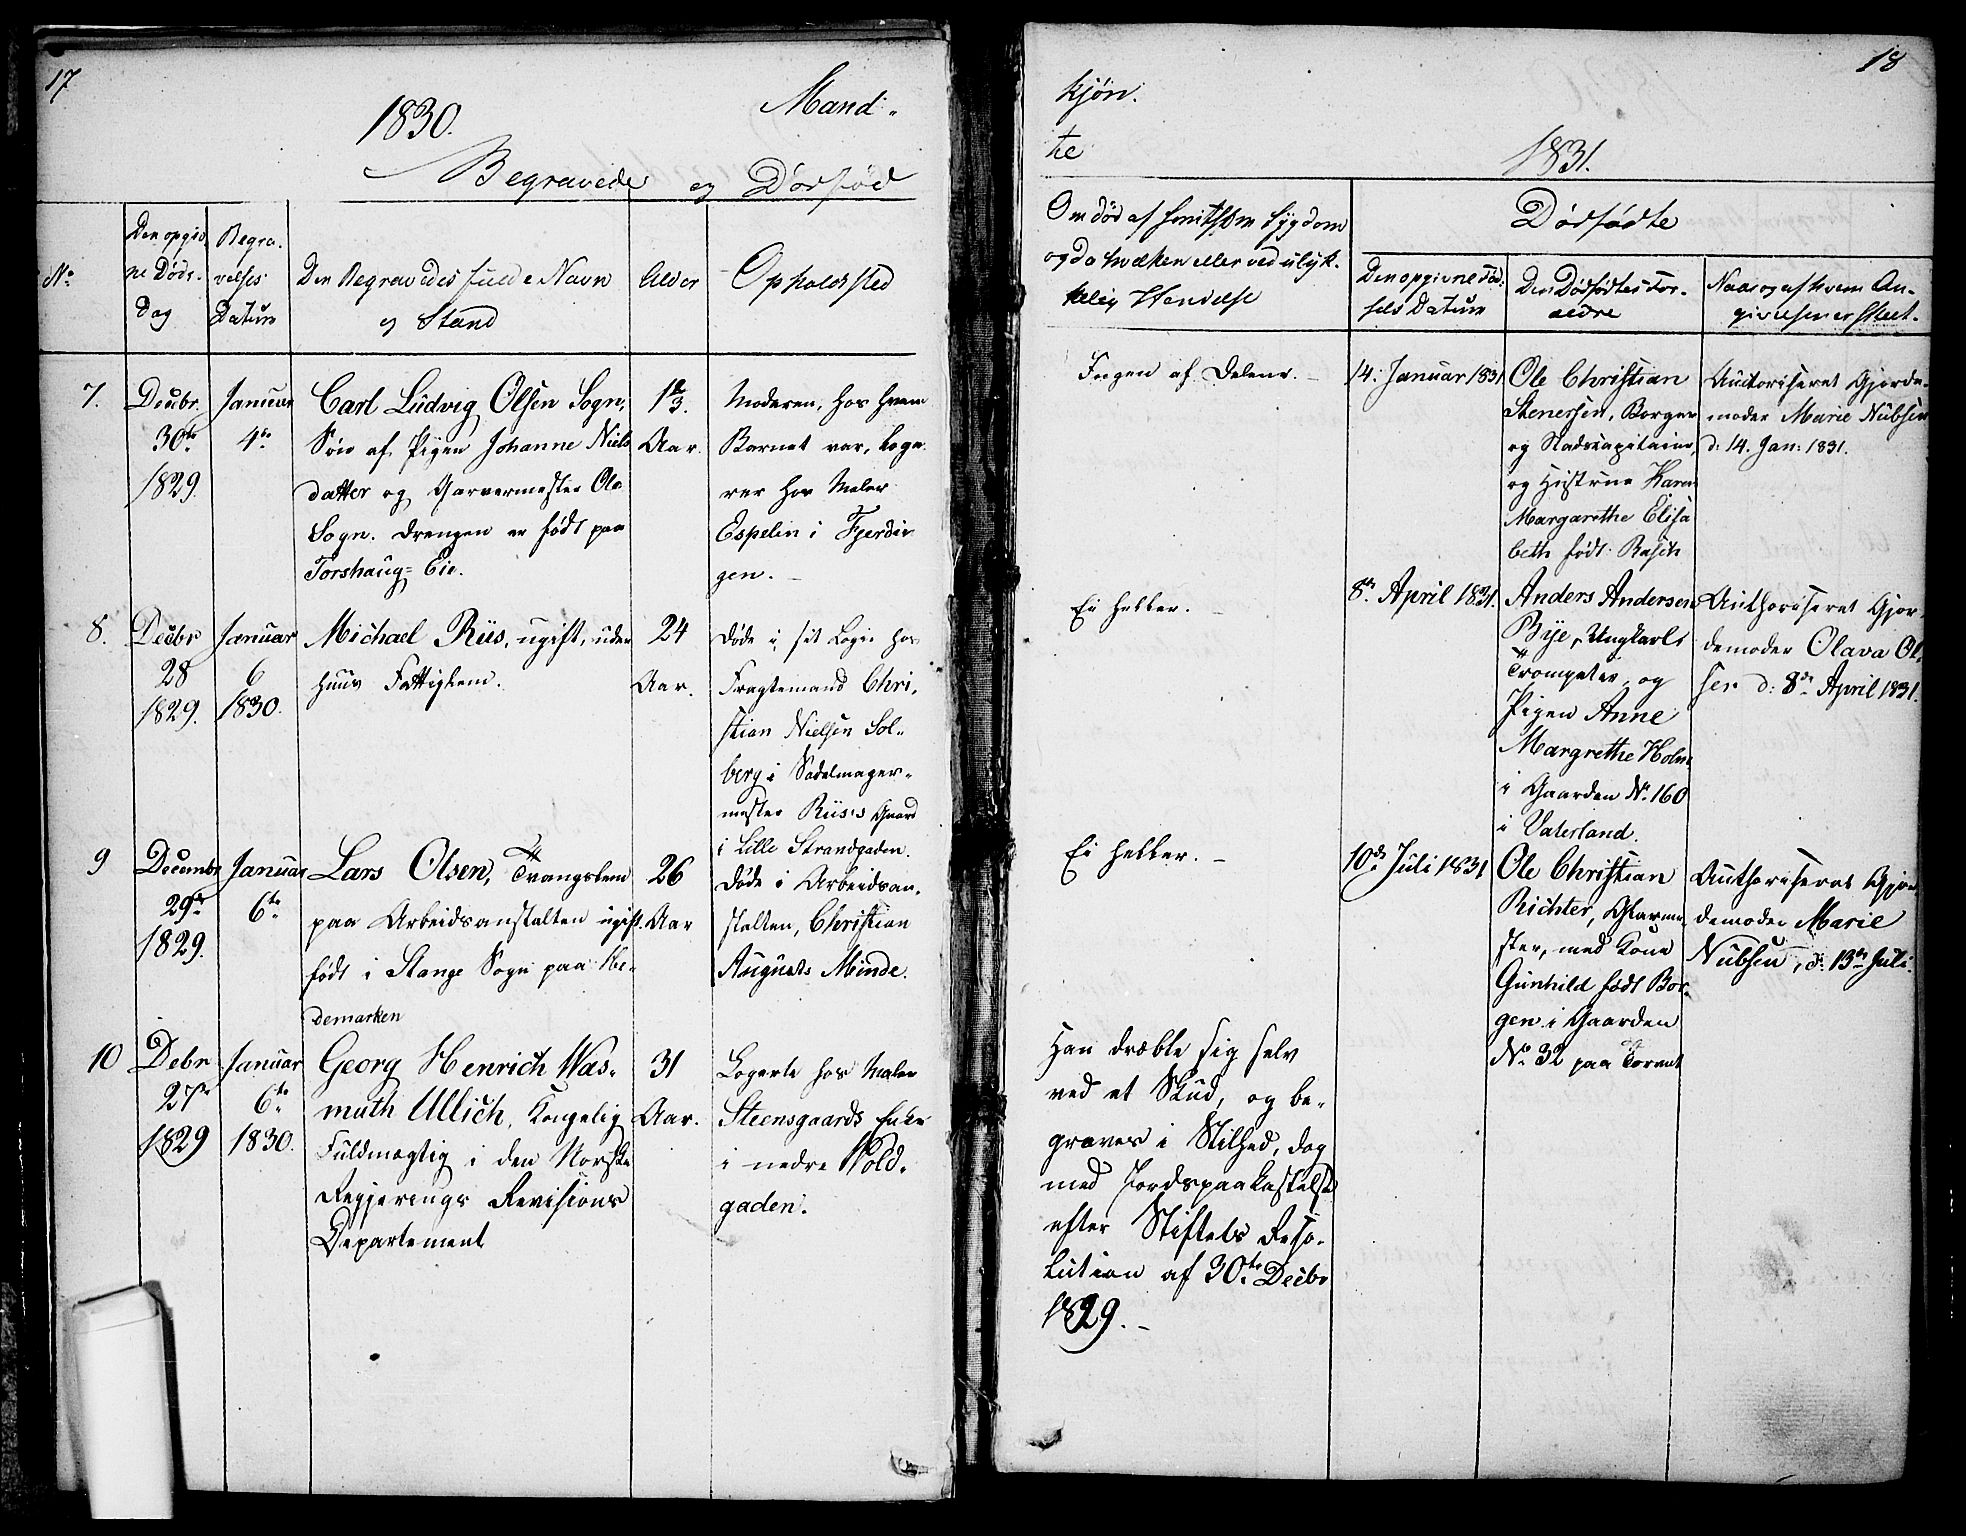 17
1830.
Mand-
Begravede og Dødfød
No
Den opgiv
ne Døds-
Dag
Begra-
velses
Datum
Den Begravedes fulde Navn
og Stand
Alder
Opholdssted
7.
Decbr.
30te
1829.
Januar
4de
Carl Ludvig Olsen Sogn,
Søn af Pigen Johanne Niels
datter og Garvermester Ole
Sogn. Drengen er født paa
Torshaug-Eie.
Aar.
Moderen, hos hvem
Barnet var, loge-
rer hos Maler
Espelin i Fjerdin
gen. -
8.
Decbr
28
1829.
Januar
6
1830.
Michael Riis, ugift, uden
huus Fattiglem.
24
Aar.
Døde i sit Logie hos
Fragtemand Chri-
stian Nielsen Sol-
berg i Sadelmager-
mester Riis's Gaard
i Lille Strandgaden.
9
Decembr
29de
1829.
Januar
6te
Lars Olsen, Tvangslem
paa Arbeidsanstalten ugift.
født i Stange Sogn paa He-
demarken
26
Aar
Døde i Arbeidsan-
stalten, Christian
Augusts Minde.
10
Debr
27de
1829
Januar
6te
1830.
Georg Henrich Was-
muth Ullich, Kongelig
Fuldmægtig i den Norske
Regjerings Revisions
Departement
31
Aar.
Logerte hos Maler
Steensgaards Enke
i nedre Vold-
gaden.
18
kjøn.
te
1831.
Om død af smitsom Sygdom
og da hvilken eller ved ulyk-
kelig Hendelse
Dødfødte
Den opgivne Fød-
sels Datum
Den Dødfødtes For-
ældre
Naar og af hvem An-
givelsen er skeet.
Ingen af Delene. -
14. Januar 1831
Ole Christian
Stenersen, Borger
og Stadscapitaine,
og Hustrue Karen
Margarethe Elisa
beth født Rasch
Auctoriseret Gjorde-
moder Marie Nubsen
d. 14. Jan: 1831.
Ei heller. -
8de April 1831.
Anders Andersen
Bye, Ungkarl
Trompeter, og
Pigen Anne
Margrethe Holm
i Gaarden No. 160
i Vaterland.
Authoriseret Gjor-
demoder Olava Ol-
sen d: 8de April 1831.
Ei heller. -
10de Juli 1831
Ole Christian
Richter, Glarme-
ster, med Kone
Gunhild født Bor-
gen i Gaarden
No. 32 paa Torvet
Authoriseret Gjor
demoder Marie
Nubsen, d: 13de Juli.
Han dræbte sig selv
ved et Skud, og be-
graves i Stilhed, dog
med Jordspaakastelse
efter Stiftets Reso-
lution af 30te Decbr
1829. -